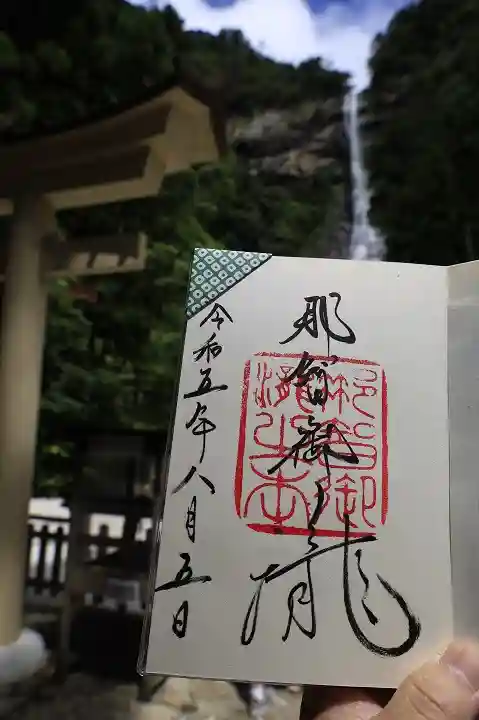 那智御瀧
令和五年八月五日